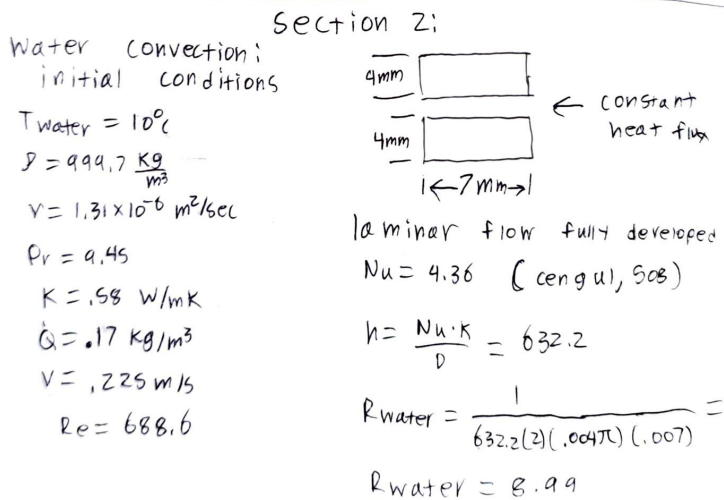 Section 2:
Water convection:
initial conditions
T water = 10°C
ρ = 999.7 Kg/m³
ν = 1.31×10⁻⁶ m²/sec
Pr = 9.45
K = .58 W/mK
Q̇ = .17 Kg/m³
V = .225 m/s
Re = 688.6
4mm
4mm
← constant
heat flux
|←7mm→|
laminar flow fully developed
Nu = 4.36 (cengul, 508)
h = Nu·K/D = 632.2
Rwater = 1/632.2(2)(.004π)(.007) =
Rwater = 8.99